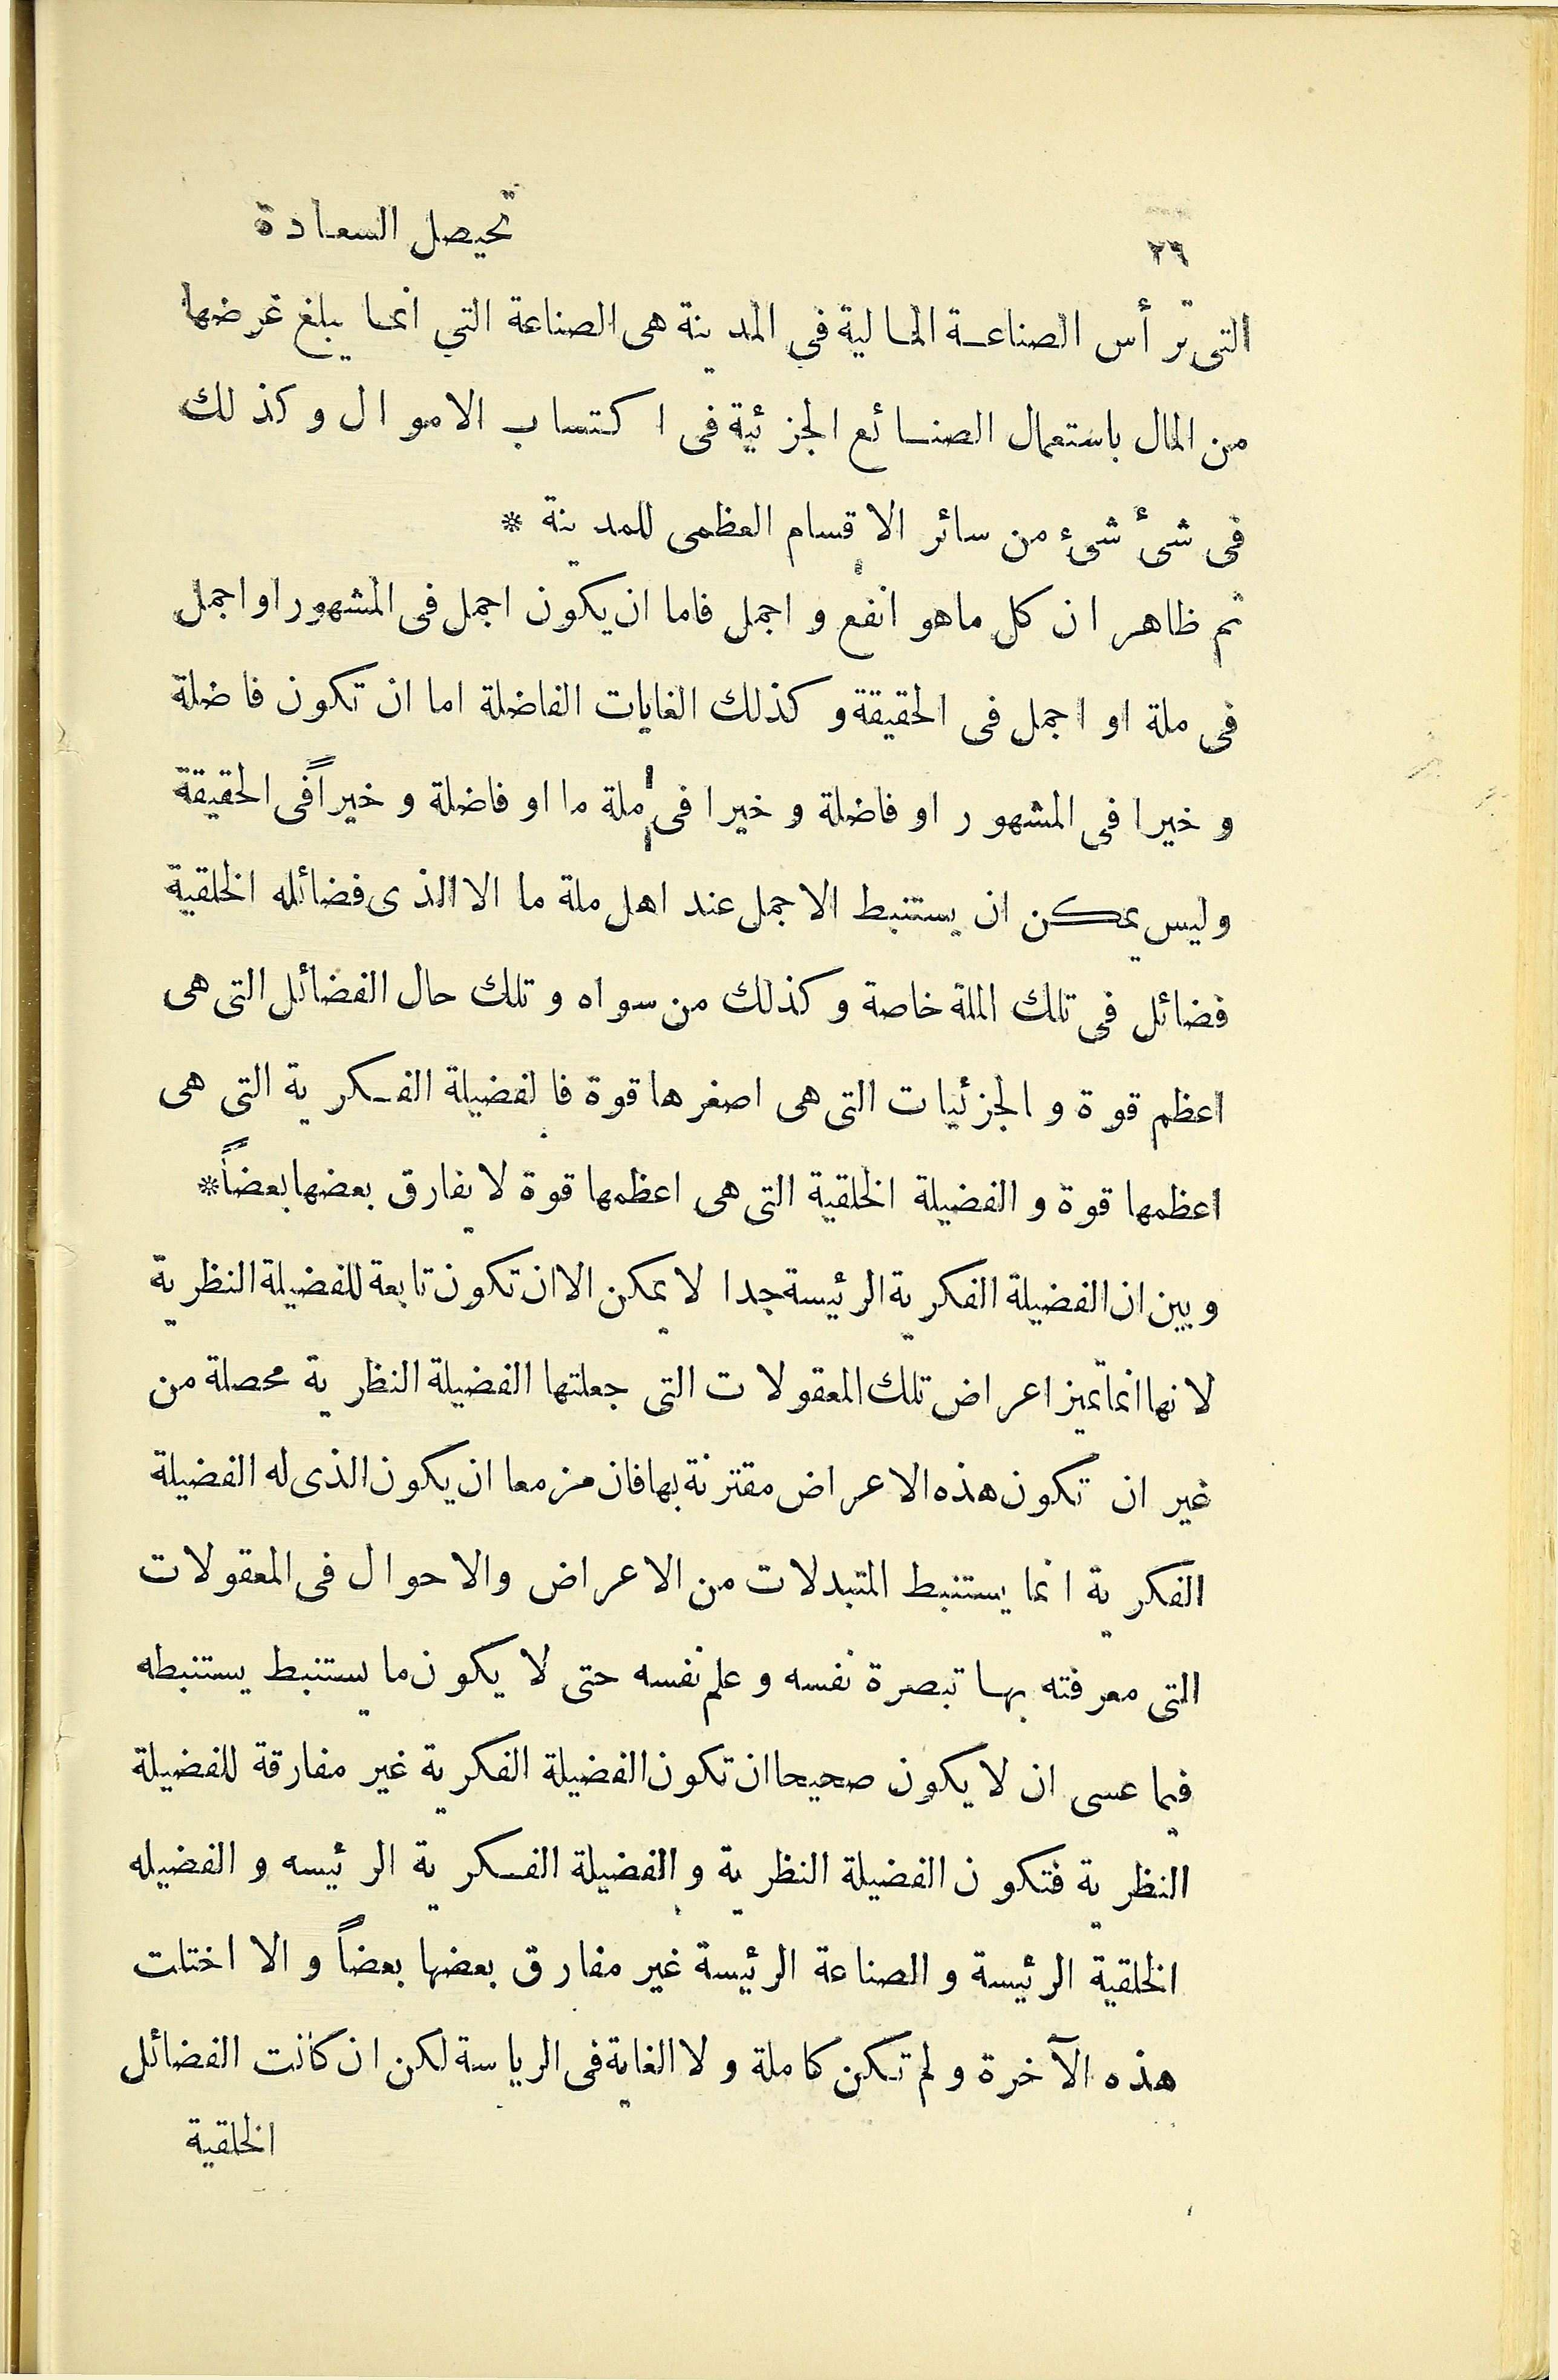 ٢٦ تحيصل السعادة
التى ترأس الصناعة المالية في المدينة هى الصناعة التي انما يبلغ غرضها
من المال باستعمال الصنائع الجزئية فى اكتساب الاموال وكذلك
فى شئ شئ من سائر الاقسام العظمى للمدينة *
ثم ظاهر ان كل ماهو انفع و اجمل فاما ان يكون اجمل فى المشهور او اجمل
فى ملة او اجمل فى الحقيقة و كذلك الغايات الفاضلة اما ان تكون فاضلة
و خيرا فى المشهور او فاضلة و خيرا فى ملة ما او فاضلة و خيراً فى الحقيقة
وليس يمكن ان يستنبط الاجمل عند اهل ملة ما الا الذى فضائله الخلقية
فضائل فى تلك الملة خاصة و كذلك من سواه و تلك حال الفضائل التى هى
اعظم قوة و الجزئيات التى هى اصغرها قوة فالفضيلة الفكرية التى هى
اعظمها قوة و الفضيلة الخلقية التى هى اعظمها قوة لا يفارق بعضها بعضاً*
و بين ان الفضيلة الفكرية الرئيسة جدا لا يمكن الا ان تكون تابعة للفضيلة النظرية
لانها انما تميز اعراض تلك المعقولات التى جعلتها الفضيلة النظرية محصلة من
غير ان تكون هذه الاعراض مقترنة بها فان مزمعا ان يكون الذى له الفضيلة
الفكرية انما يستنبط المتبدلات من الاعراض والاحوال فى المعقولات
التى معرفته بها تبصرة نفسه و علم نفسه حتى لا يكون ما يستنبط يستنبطه
فيما عسى ان لا يكون صحيحا ان تكون الفضيلة الفكرية غير مفارقة للفضيلة
النظرية فتكون الفضيلة النظرية و الفضيلة الفكرية الرئيسه و الفضيله
الخلقية الرئيسة و الصناعة الرئيسة غير مفارق بعضها بعضاً و الا اختلت
هذه الآخرة و لم تكن كاملة و لا الغاية فى الرياسة لكن ان كانت الفضائل
الخلقية